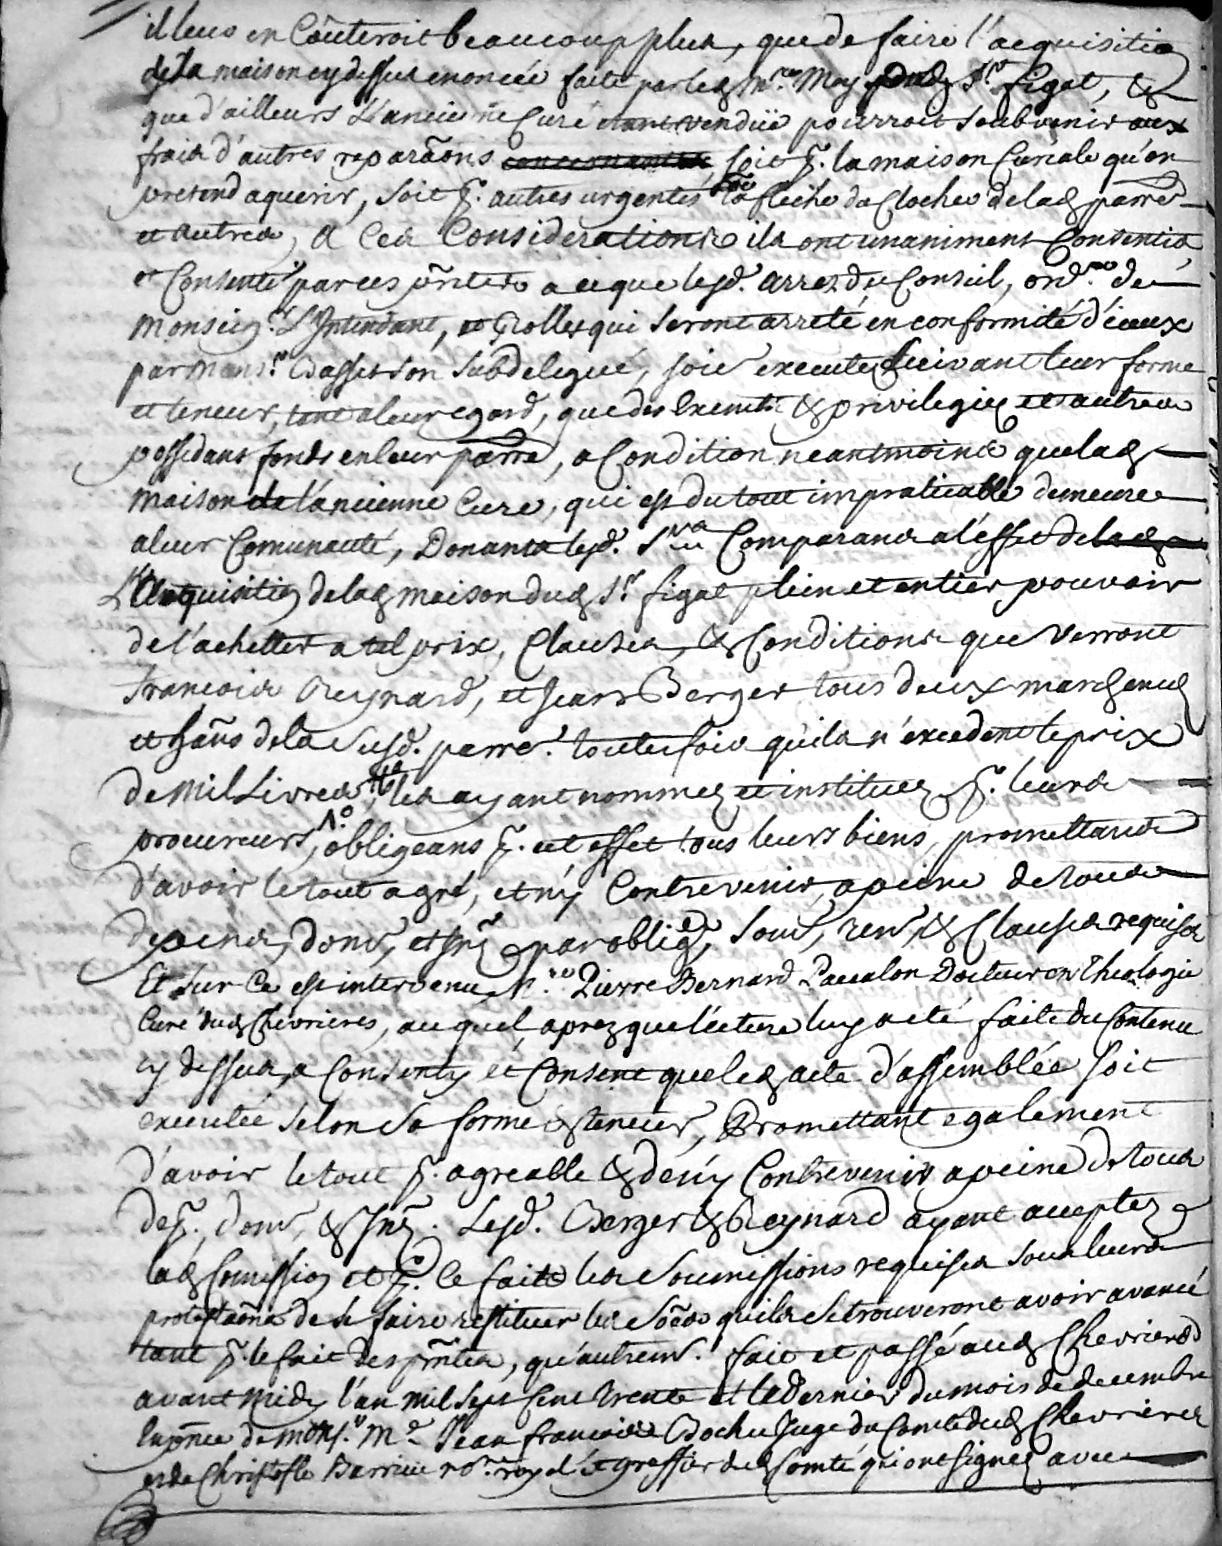 il leus en Coûteroit beaucoup plus, que de faire l'acquisitio
de la maison cy dessus enoncée faite par led. M.re May dud. S.r figat, &
que d'ailleurs L'ancienne Curé etant venduë pourroit Soubvenir aux
frais d'autres reparãons soit p. la maison Curiale qu'on
pretend aquerir, Soit p. autres urgentes la fleche du Clocher de lad. parre
et autres, A Ces Considerations ils ont unaniment Consentis
et Consente par ces pñtes a ce que lesd. Arrez du Conseil, ord.ce de
Monseig.r L'Intendant, et Rolles qui Seront arreté en conformité d'iceux
par Mons.r Basset Son Subdelegué, soit executé suivant leur forme
et teneur, tant a leur egard, que des Exempts & privilegiez et autres
possedans fonds en leur parre, a Condition neantmoins que lad.
Maison de l'ancienne Cure, qui est du tout impraticable demeure
a leur Comunauté, Donants lesd. S.rs Comparans a l'effet de lad.
L'Acquisitio de lad. maison dud. S.r figat plein et entier pouvoir
de l'achetter a tel prix, Clauses, & Conditions que Verront
François Reynard, et Jean Berger tous deux marchands
et hãns de la Susd. parre. toutes fois qu'ils n'excedent le prix
de Mil Livres, les ayant nommez et instituez p. leurs
procureurs, obligeans p. cet effet tous leurs biens, promettants
d'avoir le tout agré, et n'y Contrevenir a peine de tous
depens, dom.s, et Int. par oblig., Soum., ren., & Clauses requises
Et Sur Ce est intervenu M.re Pierre Bernard Pacalon Docteur en Theologie
Curé dud. Chevrieres, auquel, aprez que lecture luy a eté faite du Contenu
cy dessus, a Consenty et Consent que led. acte d'assemblée soit
executée Selon Sa forme & teneur, Promettant egalement
d'avoir le tout p. agreable & de n'y Contrevenir a peine de tous
dep., dom.s, & Int. Lesd. Berger & Reynard ayant acceptez
lad. Comissio et p. Ce faits les Soumissions requises Sous leurs
protestãons de Se faire restituer les Soães qu'ils Se trouveront avoir avancé
tant p. le fait des pñtes, qu'autrem.t. fait et passé aud. Chevrieres
avant Midy l'an mil Sept Cent trente et le dernier du mois de decembre
En pñce de Mons.r M.e Jean François Bochu Juge du Comté dud. Chevrieres
et de Christofle Barrieu no.re royal & greffier dud. Comté qui ont signez avec